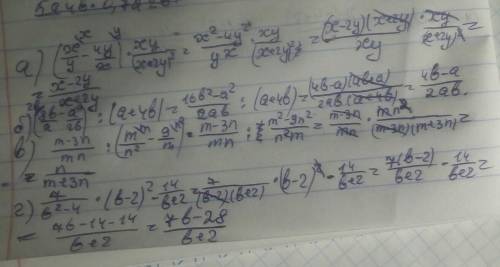 а) (x/y − 4y/x) · xy/(x+2y)² = (x²−4y²)/yx · xy/(x+2y)² = (x−2y)(x+2y)/xy · xy/(x+2y)² =
= (x−2y)/(x+2y)
б) (8b−a)/2ab : (a+4b) = (16b²−a²)/2ab : (a+4b) = (4b−a)(4b+a)/2ab(a+4b) = (4b−a)/2ab.
в) (m−3n)/mn : (m/n² − 9/m) = (m−3n)/mn : (m²−9n²)/n²m = (m−3n)/mn · mn²/(m−3n)(m+3n) =
= n/(m+3n)
г) 7/(b²−4) · (b−2)² − 14/(b+2) = 7/(b−2)(b+2) · (b−2)² − 14/(b+2) = 7(b−2)/(b+2) − 14/(b+2) =
= (7b−14−14)/(b+2) = (7b−28)/(b+2)